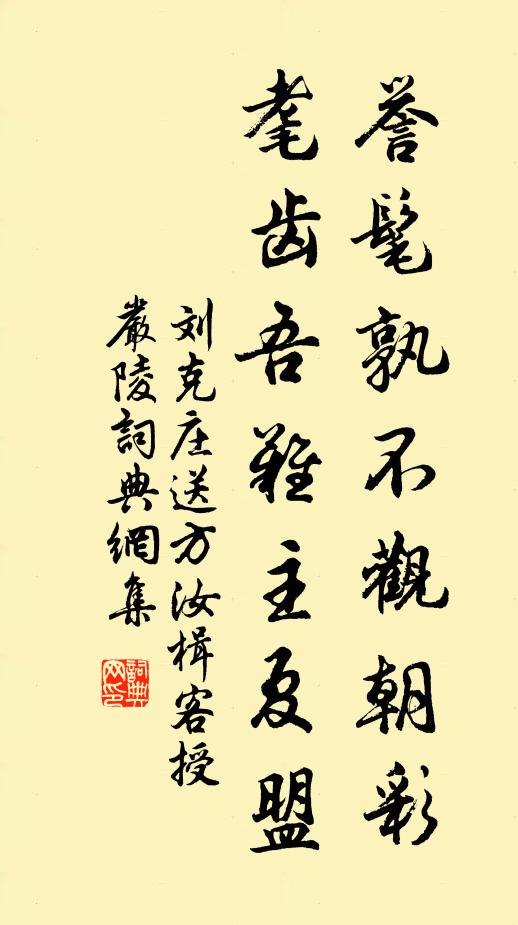 誉髦孰不觀朝彩
耄齿吾難主夏盟
刘克庄送方汝楫客授
嚴陵詞典網集
詞典网印